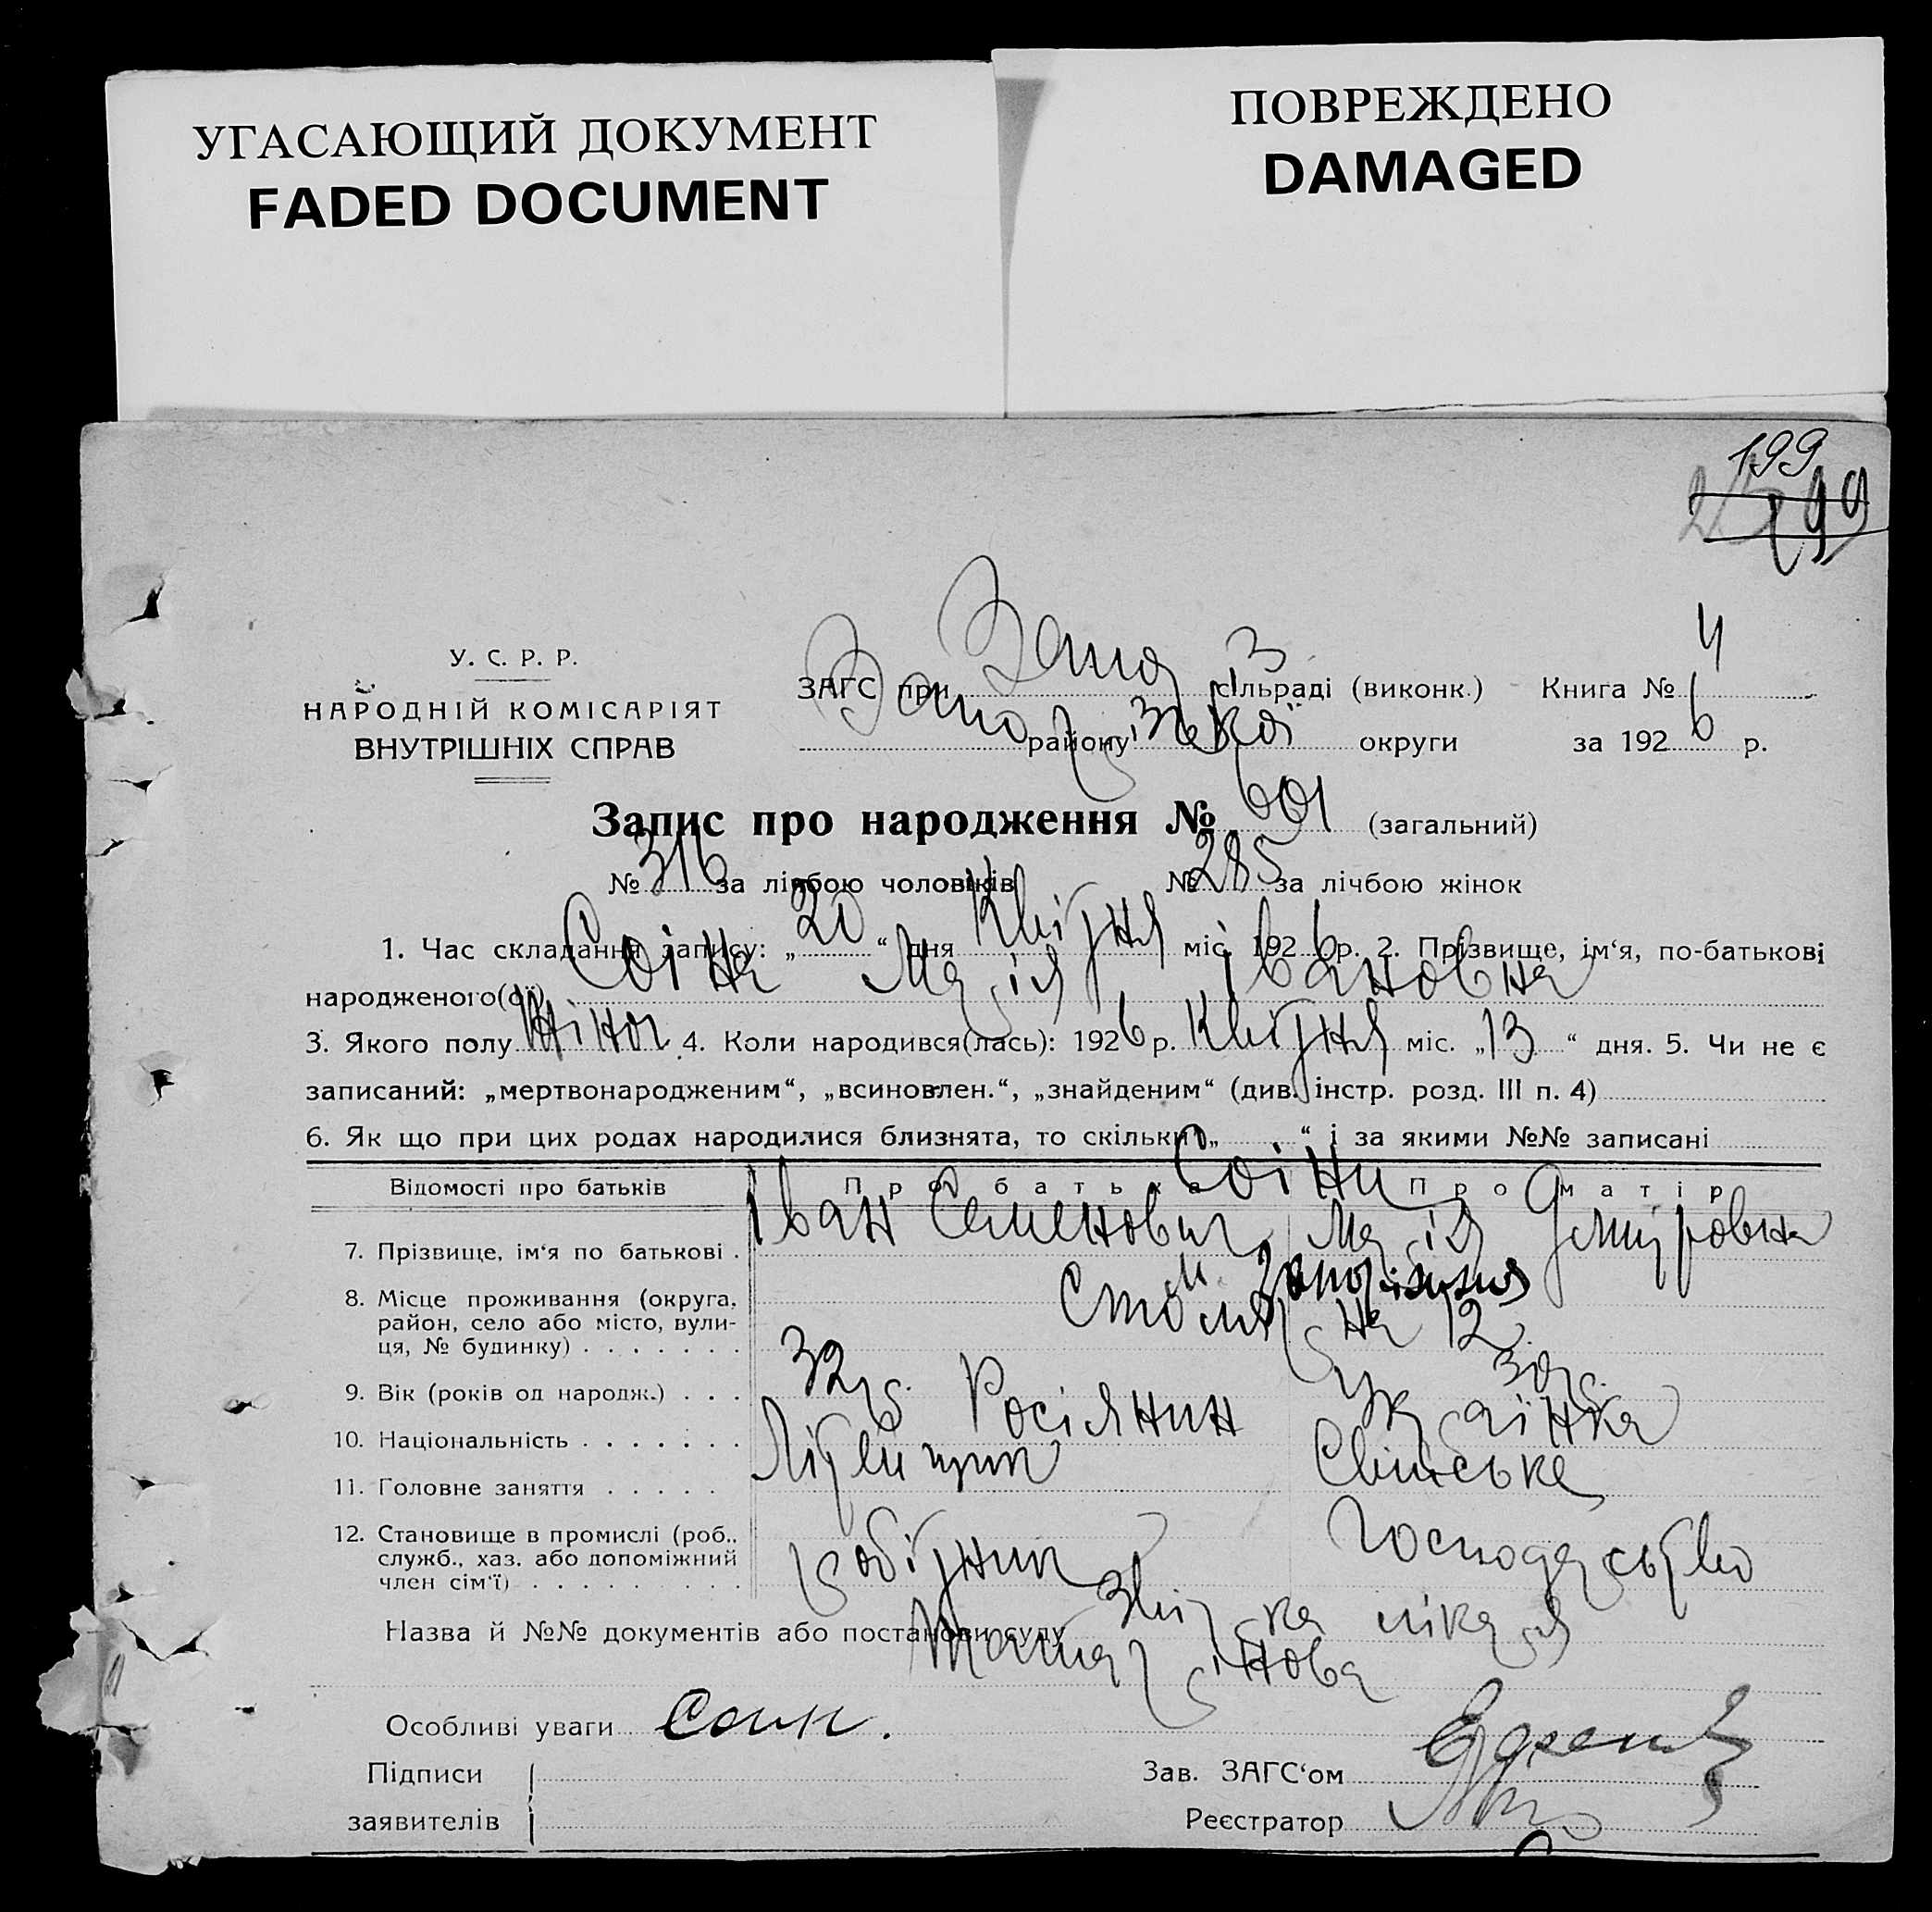 УГАСАЮЩИЙ ДОКУМЕНТ
FADED DOCUMENT
ПОВРЕЖДЕНО
DAMAGED
199
У. С. Р. Р.
НАРОДНІЙ КОМІСАРІЯТ
ВНУТРІШНІХ СПРАВ
ЗАГС при Запоріз. сільраді (виконк.) Книга № 4
Запорізької району округи за 1926 р.
Запис про народження № 601 (загальний)
№ 316 за лічбою чоловіків № 285 за лічбою жінок
1. Час складання запису: „20“ дня Квітня міс. 1926 р. 2. Прізвище, ім‘я, по-батькові
народженого(ої) Соіна Марія Івановна
3. Якого полу жіноч 4. Коли народився(лась): 1926 р. Квітня міс. „13“ дня. 5. Чи не є
записаний: „мертвонародженим“, „всиновлен.“, „знайденим“ (див. інстр. розд. III п. 4)
6. Як що при цих родах народилися близнята, то скільки „ “ і за якими №№ записані
Відомості про батьків Про батька Про матір
Соіни
7. Прізвище, ім‘я по батькові . Іван Семенович Марія Дмитровна
8. Місце проживання (округа, м. Запоріжжя
район, село або місто, вули- Столярна 12.
ця, № будинку) . . . . . . .
9. Вік (років од народж.) . . . 32 р. 30 р.
10. Національність . . . . . . . Росіянин Українка
11. Головне заняття . . . . . Літейщик Свійське
12. Становище в промислі (роб., Господарство
служб., хаз. або допоміжний робітник
член сім‘ї) . . . . . . . . .
Назва й №№ документів або постанови суду Звістка лікаря
Особливі уваги
Підписи
заявителів
Зав. ЗАГС‘ом
Реєстратор